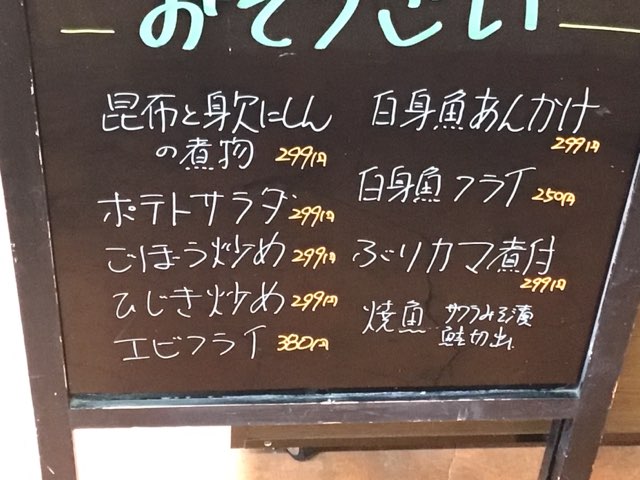 おそうざい
昆布と身欠にしん
の煮物 299円
ポテトサラダ 299円
ごぼう炒め 299円
ひじき炒め 299円
エビフライ 380円
白身魚あんかけ
299円
白身魚フライ 250円
ぶりカマ煮付
299円
焼魚 サワラみそ漬
鮭切出